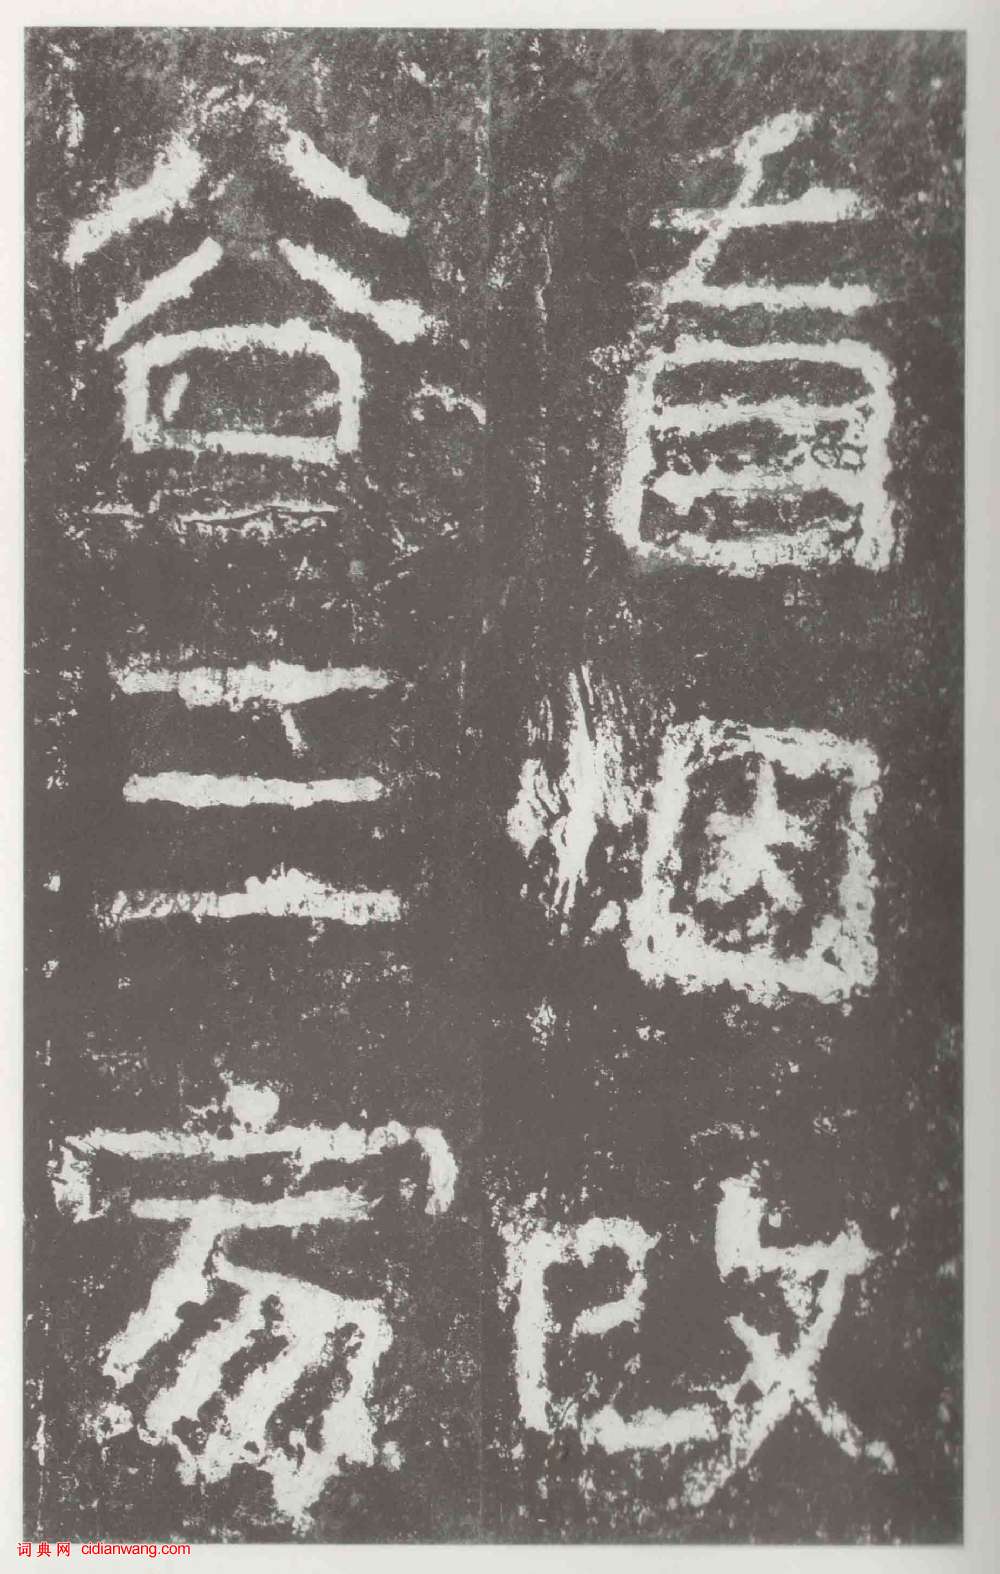 看烟改
谷三家
词典网 cidianwang.com